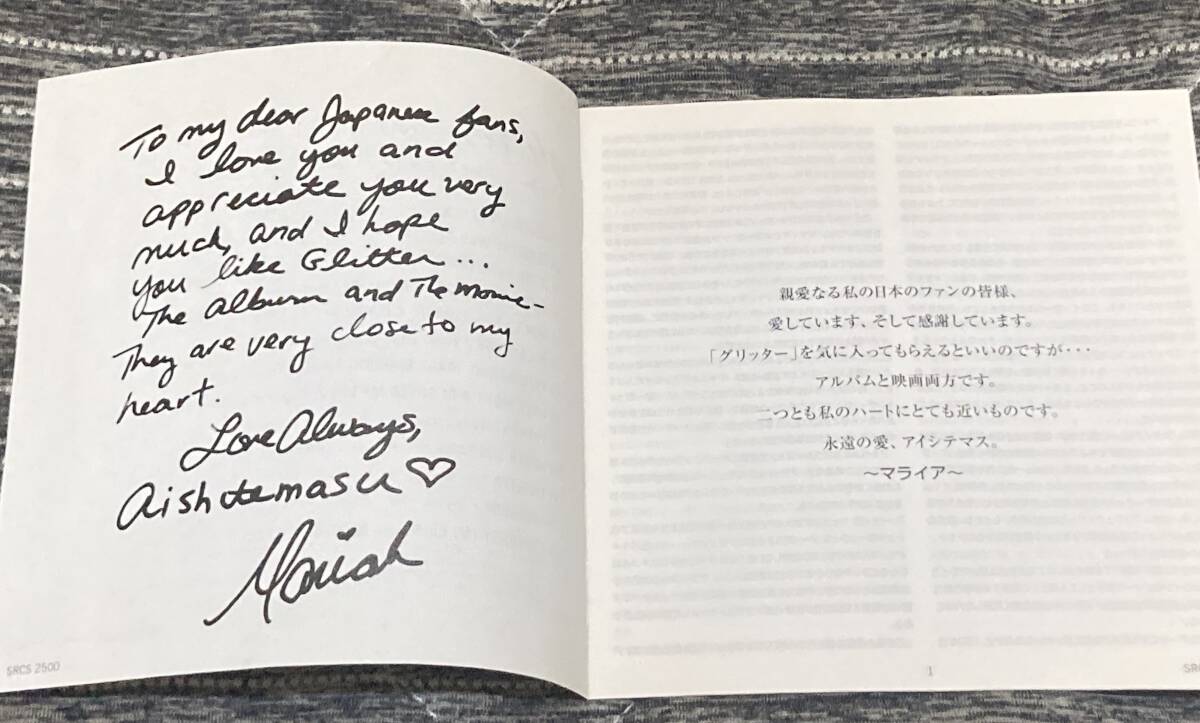 To my dear Japanese fans,
I love you and
appreciate you very
much, and I hope
you like Glitter...
The album and The movie-
They are very close to my
heart.
Love Always,
Aishitemasu ♡
Mariah
SRCS 2500
親愛なる私の日本のファンの皆様、
愛しています、そして感謝しています。
「グリッター」を気に入ってもらえるといいのですが・・・
アルバムと映画両方です。
二つとも私のハートにとても近いものです。
永遠の愛、アイシテマス。
〜マライア〜
1
SRC